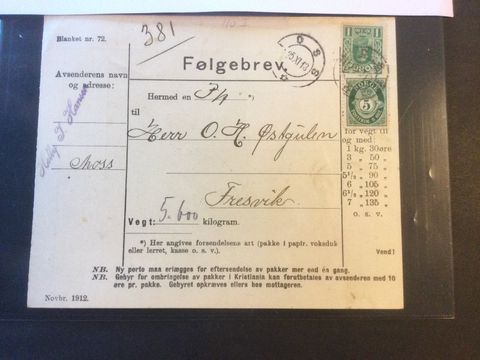 Blanket nr. 72.
381
Følgebrev.
MOSS
25 XI 13
1
NORGE
5
Avsenderens navn
og adresse:
Moss
Hermed en P/k *)
til
Herr O. H. Østgulen
Fresvik.
Vegt: 5.600 kilogram.
for vegt til
og med:
1 kg. 30øre
3 „ 50 „
5 „ 75 „
5½ „ 90 „
6 „ 105 „
6½ „ 120 „
7 „ 135 „
o. s. v.
*) Her angives forsendelsens art (pakke i papir, voksduk
eller lerret, kasse o. s. v.).
Vend!
NB. Ny porto maa erlægges for eftersendelse av pakker mer end én gang.
NB. Gebyr for ombringelse av pakker i Kristiania kan forutbetales av avsenderen med 10
øre pr. pakke. Gebyret opkræves ellers hos mottageren.
Novbr. 1912.